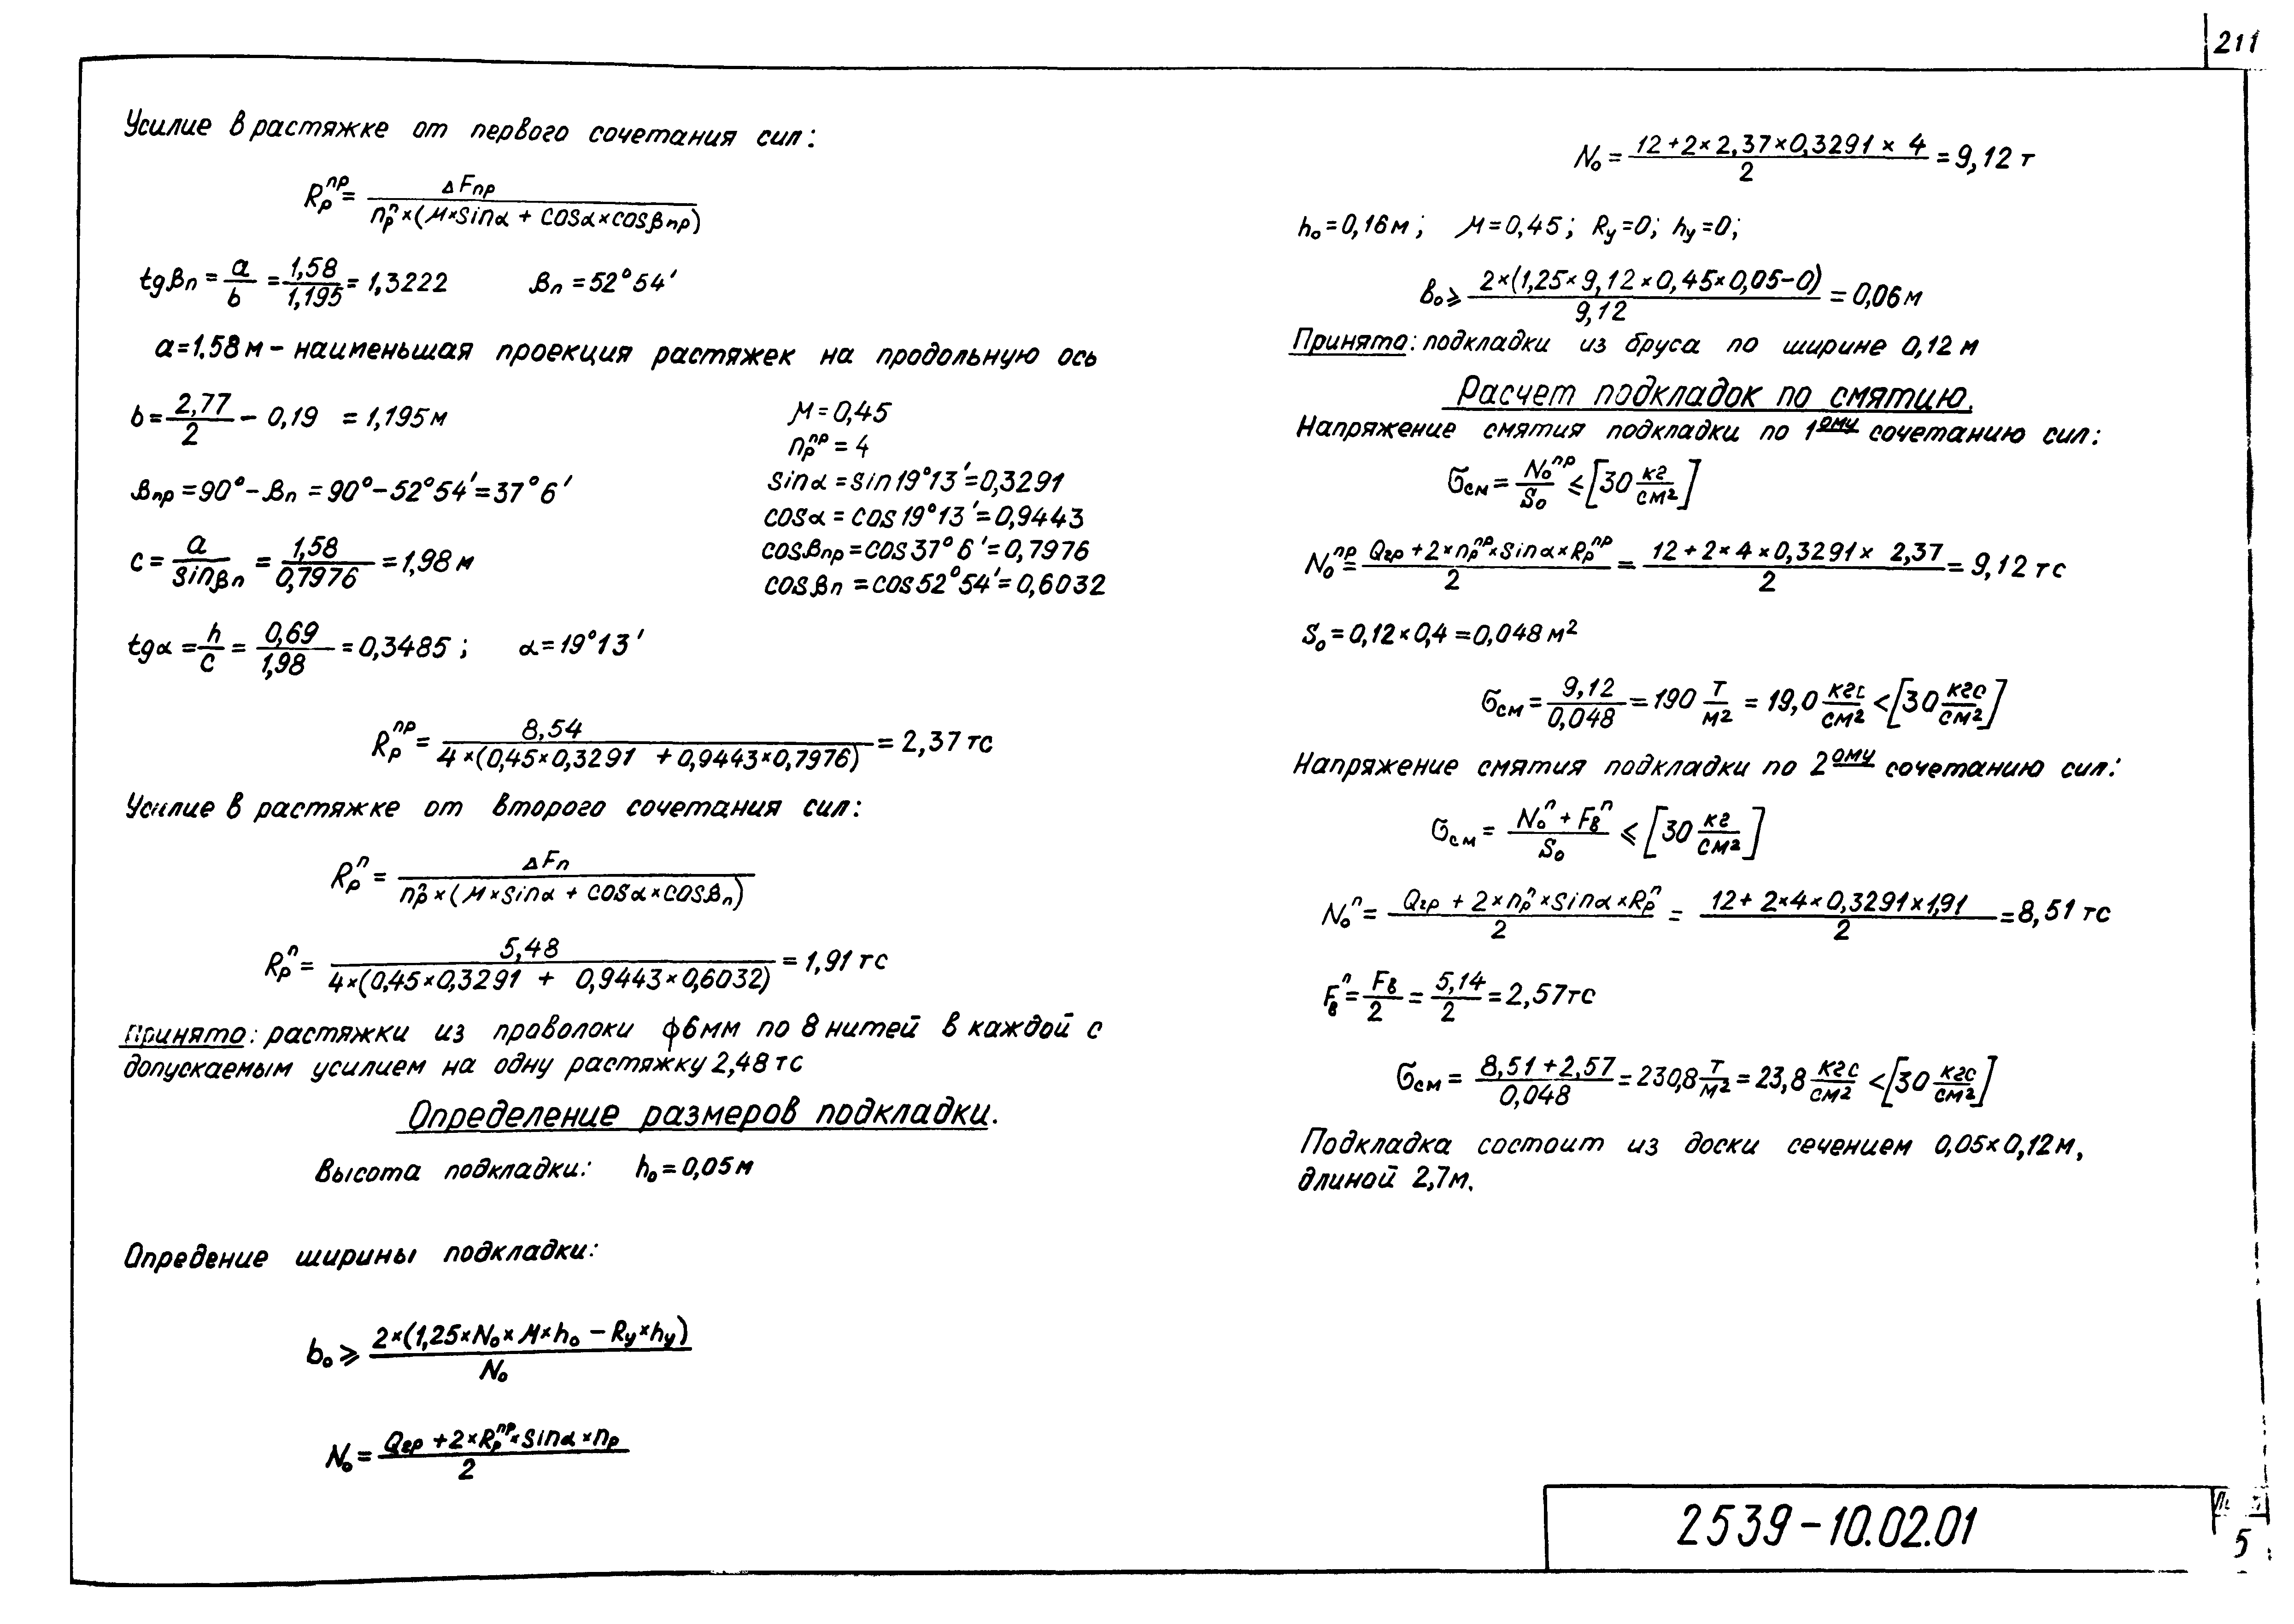 211
Усилие в растяжке от первого сочетания сил:
Rрпр = ΔFпр / nрп×(μ×sinα + cosα×cosβпр)
tgβп = a/b = 1,58/1,195 = 1,3222 βп = 52°54′
a=1.58м – наименьшая проекция растяжек на продольную ось
b = 2,77/2 – 0,19 = 1,195м
μ = 0,45
nрпр = 4
βпр = 90° – βп = 90° – 52°54′ = 37°6′
sinα = sin19°13′ = 0,3291
cosα = cos19°13′ = 0,9443
c = a/sinβп = 1,58/0,7976 = 1,98м
cosβпр = cos37°6′ = 0,7976
cosβп = cos52°54′ = 0,6032
tgα = h/c = 0,69/1,98 = 0,3485; α = 19°13′
Rрпр = 8,54 / 4×(0,45×0,3291 + 0,9443×0,7976) = 2,37тс
Усилие в растяжке от второго сочетания сил:
Rрп = ΔFп / nрп×(μ×sinα + cosα×cosβп)
Rрп = 5,48 / 4×(0,45×0,3291 + 0,9443×0,6032) = 1,91тс
Принято: растяжки из проволоки ф6мм по 8 нитей в каждой с
допускаемым усилием на одну растяжку 2,48тс
Определение размеров подкладки.
Высота подкладки: h₀ = 0,05м
Опредение ширины подкладки:
b₀ ⩾ 2×(1,25×N₀×μ×h₀ – Rу×hу) / N₀
N₀ = Qгр + 2×Rрпр×sinα×nр / 2
N₀ = 12+2×2,37×0,3291×4 / 2 = 9,12т
h₀ = 0,16м; μ = 0,45; Rу = 0; hу = 0;
в₀ ⩾ 2×(1,25×9,12×0,45×0,05–0) / 9,12 = 0,06м
Принято: подкладки из бруса по ширине 0,12м
Расчет подкладок по смятию.
Напряжение смятия подкладки по 1ому сочетанию сил:
σсм = N₀пр/S₀ ⩽ [30 кг/см²]
N₀пр = Qгр+2×nрпр×sinα×Rрпр / 2 = 12+2×4×0,3291×2,37 / 2 = 9,12тс
S₀ = 0,12×0,4 = 0,048м²
σсм = 9,12/0,048 = 190 т/м² = 19,0 кгс/см² < [30 кгс/см²]
Напряжение смятия подкладки по 2ому сочетанию сил:
σсм = N₀п + Fвп / S₀ ⩽ [30 кг/см²]
N₀п = Qгр + 2×nрп×sinα×Rрп / 2 = 12+2×4×0,3291×1,91 / 2 = 8,51тс
Fвп = Fв/2 = 5,14/2 = 2,57тс
σсм = 8,51+2,57 / 0,048 = 230,8 т/м² = 23,8 кгс/см² < [30 кгс/см²]
Подкладка состоит из доски сечением 0,05×0,12м,
длиной 2,7м.
2539-10.02.01
5